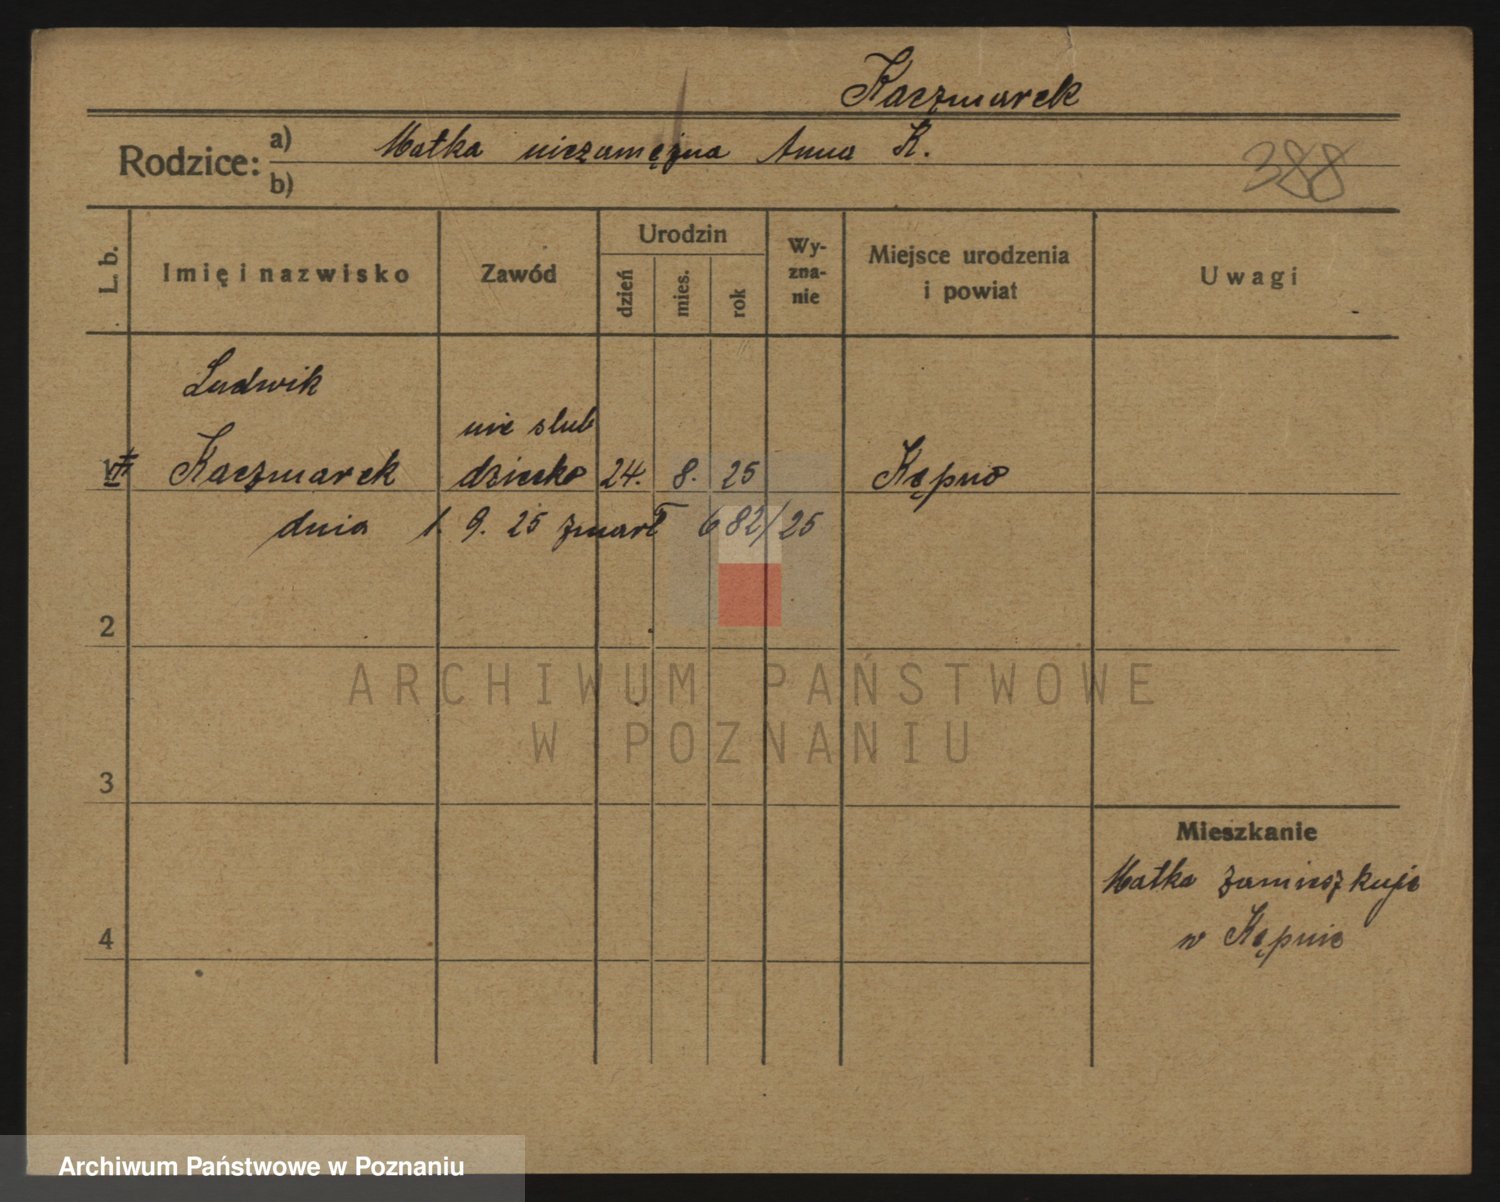 Kaczmarek
Rodzice: a) Matka niezamężna Anna K.
b)
388
L. b. Imię i nazwisko Zawód Urodzin dzień mies. rok Wyznanie Miejsce urodzenia i powiat Uwagi
Ludwik
nie slub
1 Kaczmarek dziecko 24. 8. 25 Kępno
dnia 1. 9. 25 zmarł 682/25
2
ARCHIWUM PAŃSTWOWE
W POZNANIU
3
Mieszkanie
Matka zamieszkuje
4 w Kępnie
Archiwum Państwowe w Poznaniu